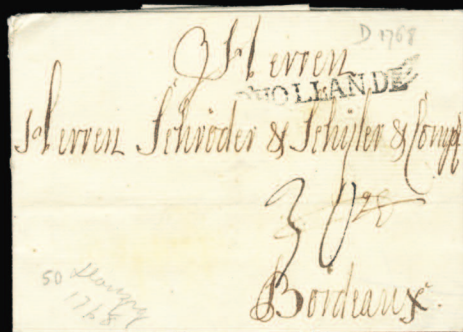 D 1768
Herren
D'HOLLANDE
Herren Schröder & Schÿler & Comp
30
Bordeaux.
50
1768